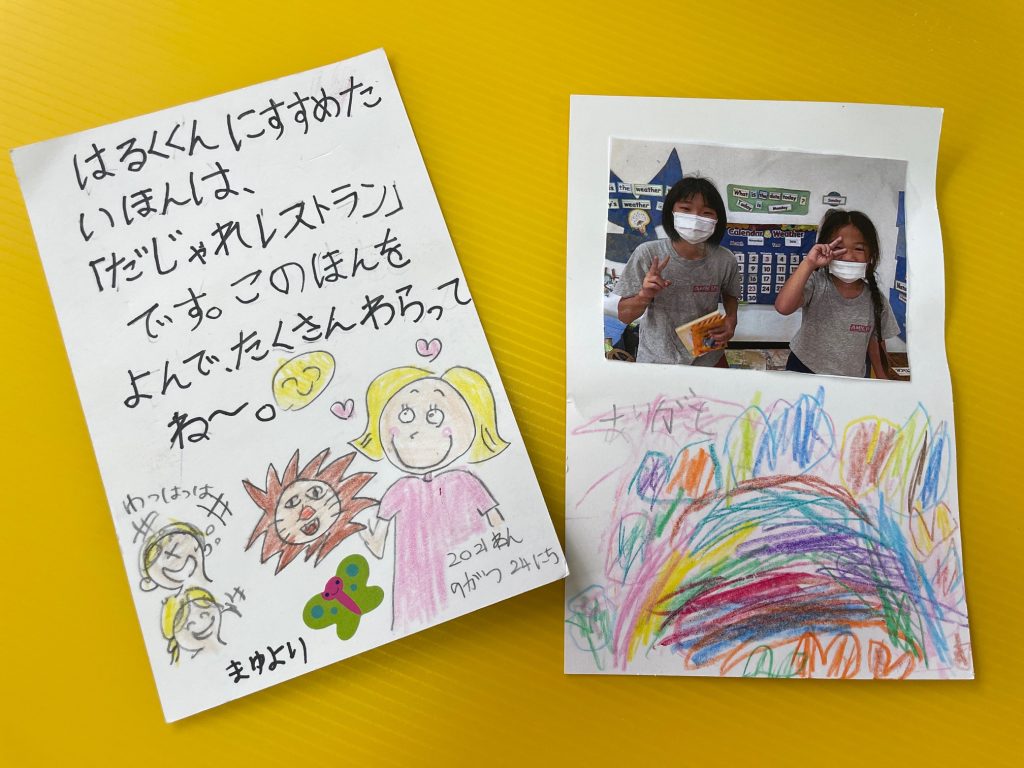 はるくくんにすすめた
いほんは、
「だじゃれレストラン」
です。このほんを
よんで、たくさんわらって
ね〜。
わっはっは
2021ねん
9がつ 24にち
まゆより
is the weather
What is the date today?
Today is Monday
Sunday
Calendar Weather
ありがとう